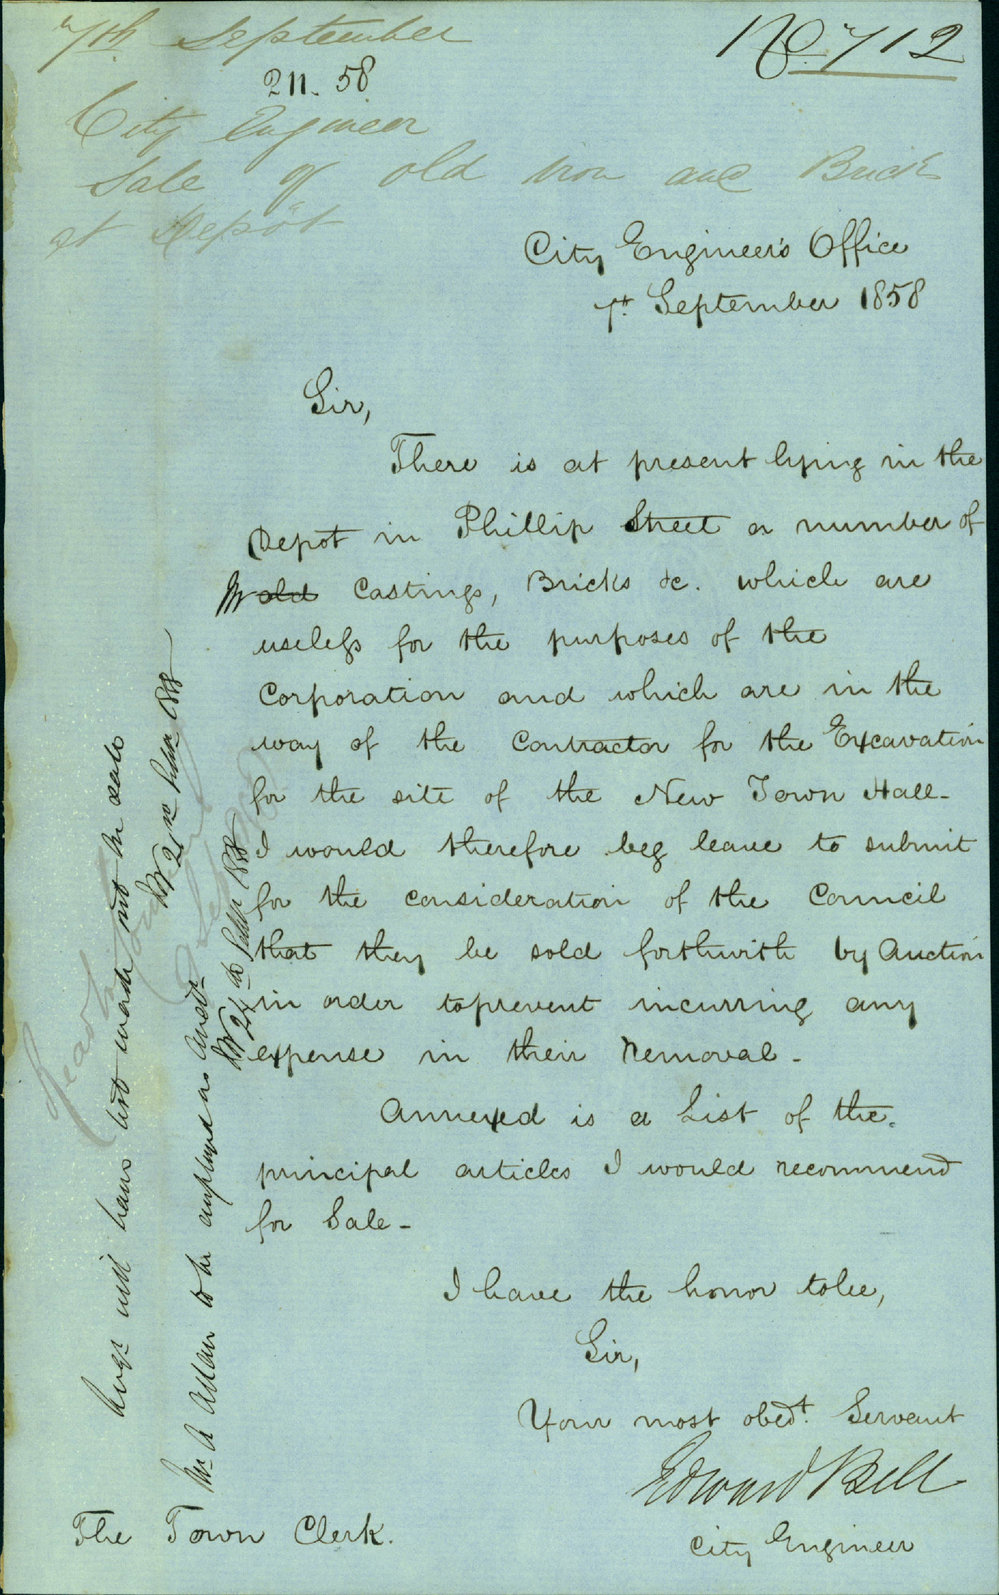 7th September
No. 712
211. 58
City Engineer
Sale of old Iron and Brick
at Depôt
City Engineer's Office
7th September 1858
Sir,
There is at present lying in the
Depot in Phillip Street a number of
old Castings, Bricks &c. which are
useless for the purposes of the
Corporation and which are in the
way of the Contractor for the Excavation
for the site of the New Town Hall-
I would therefore beg leave to submit
for the consideration of the Council
that they be sold forthwith by Auction
in order to prevent incurring any
expense in their Removal-
Annexed is a List of the
principal articles I would recommend
for Sale-
I have the honor to be,
Sir,
Your most obedt. Servant
Edward Bell
City Engineer
The Town Clerk.
will have list made out for sale
to be employed as Auctr